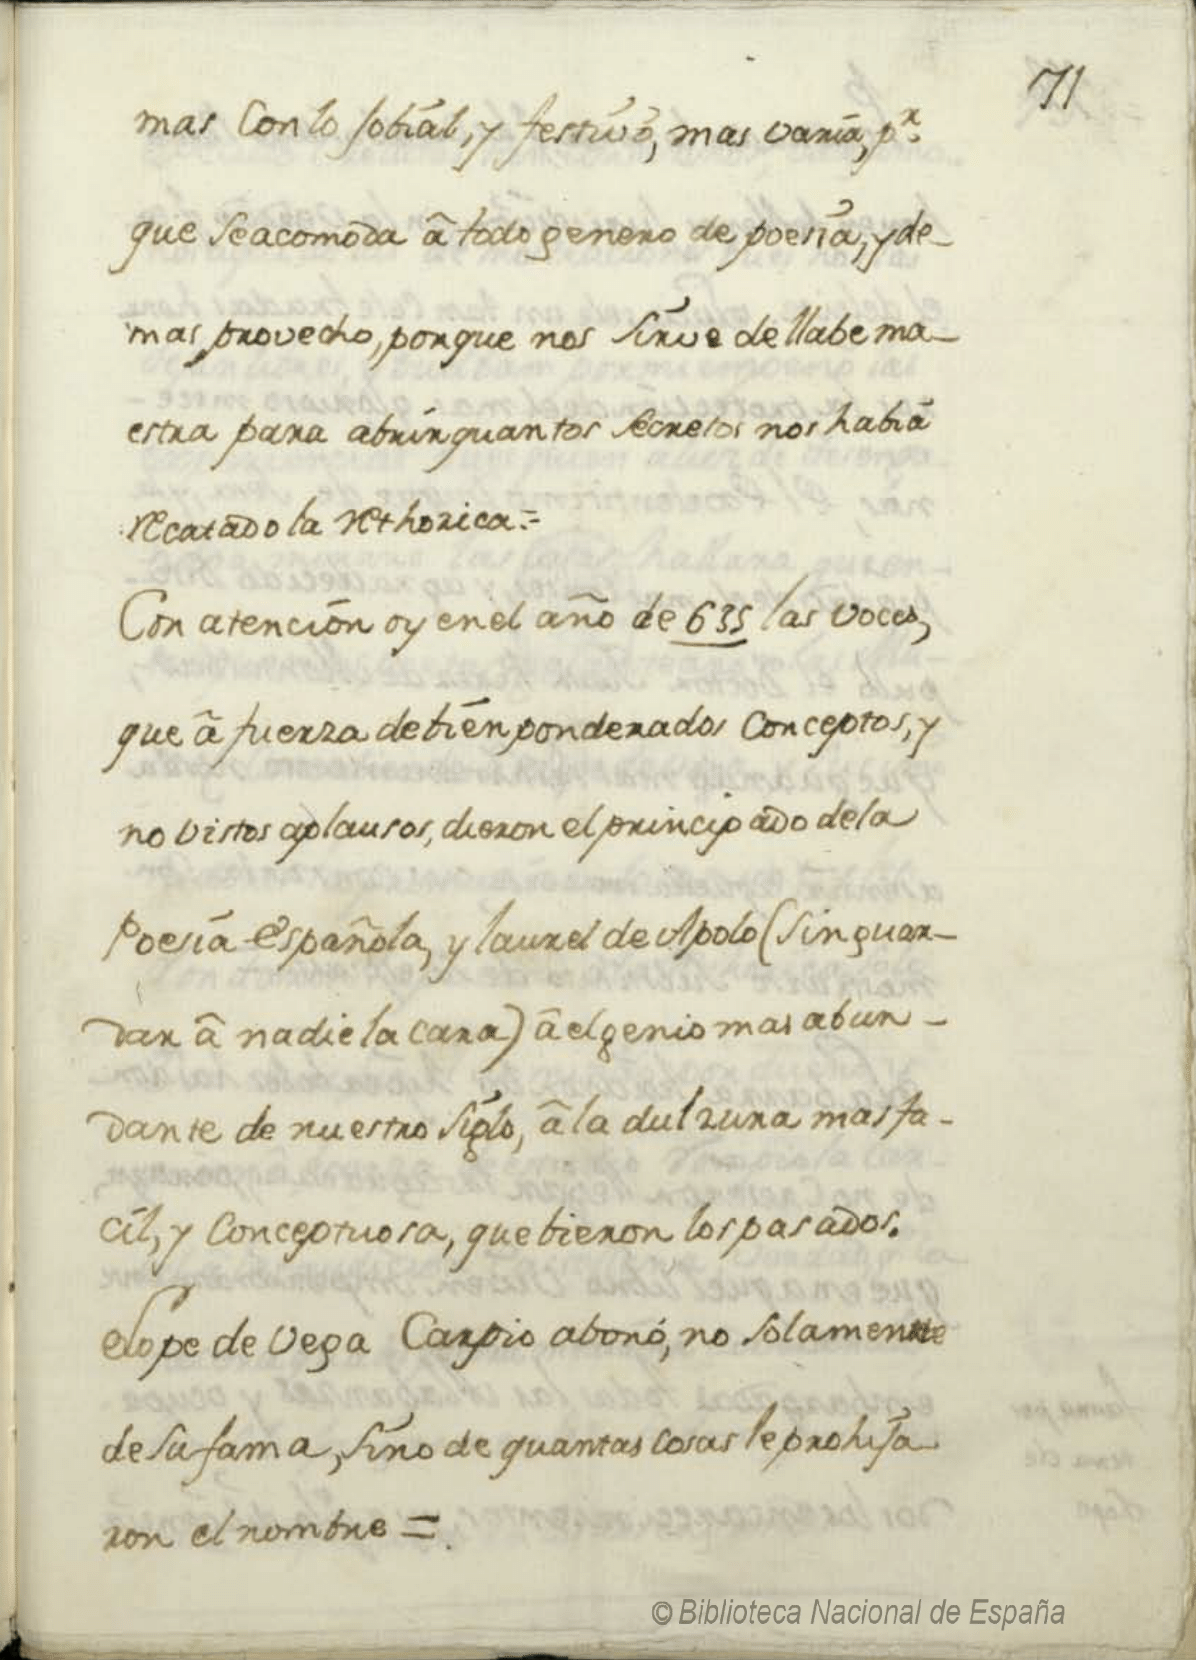 71
mas con lo sobial, y festivo, mas varia, pr.
que se acomoda â todo genero de poesia, y de-
mas provecho, porque nos sirve de llabe ma-
estra para abrir quantos secretos nos habia
recatado la rethorica =
Con atención oy en el año de 635 las voces,
que â fuerza de bien ponderados conceptos, y
no vistos aplausos, dieron el principado de la
Poesia española, y laurel de Apolo (sin guar-
dar â nadie la cara) â el genio mas abun-
dante de nuestro siglo, â la dulzura mas fa-
cil, y conceptuosa, que bieron los pasados.
Lope de Vega Carpio abonó, no solamente
de su fama, sino de quantas cosas le prohija
ron el nombre =
© Biblioteca Nacional de España